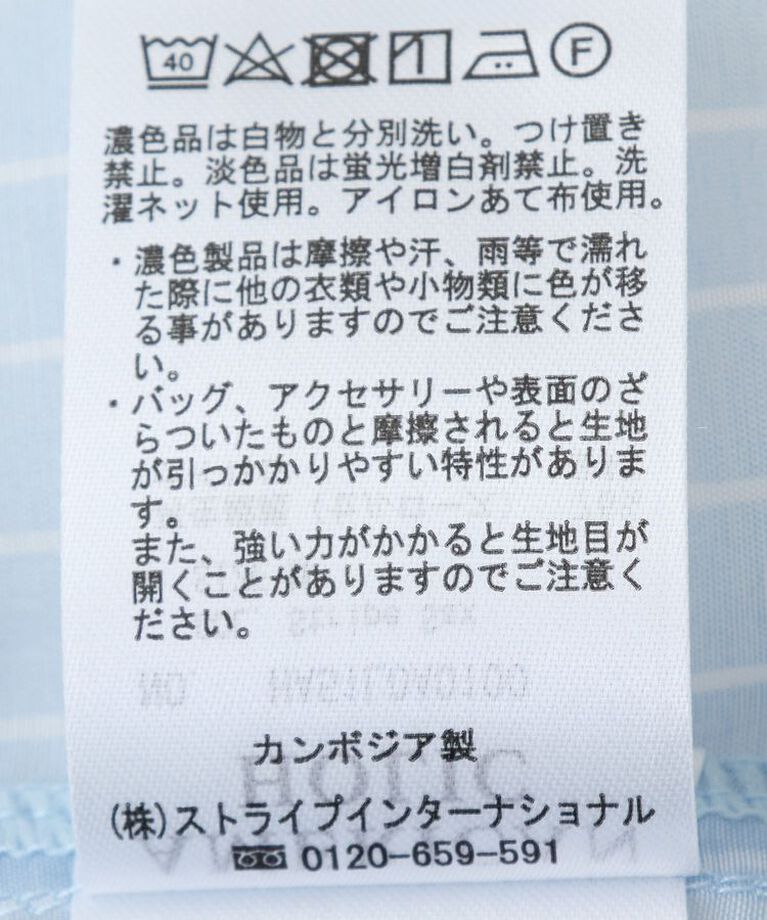 40 F
濃色品は白物と分別洗い。つけ置き
禁止。淡色品は蛍光増白剤禁止。洗
濯ネット使用。アイロンあて布使用。
・濃色製品は摩擦や汗、雨等で濡れ
た際に他の衣類や小物類に色が移
る事がありますのでご注意くださ
い。
・バッグ、アクセサリーや表面のざ
らついたものと摩擦されると生地
が引っかかりやすい特性がありま
す。
また、強い力がかかると生地目が
開くことがありますのでご注意く
ださい。
カンボジア製
(株)ストライプインターナショナル
0120-659-591